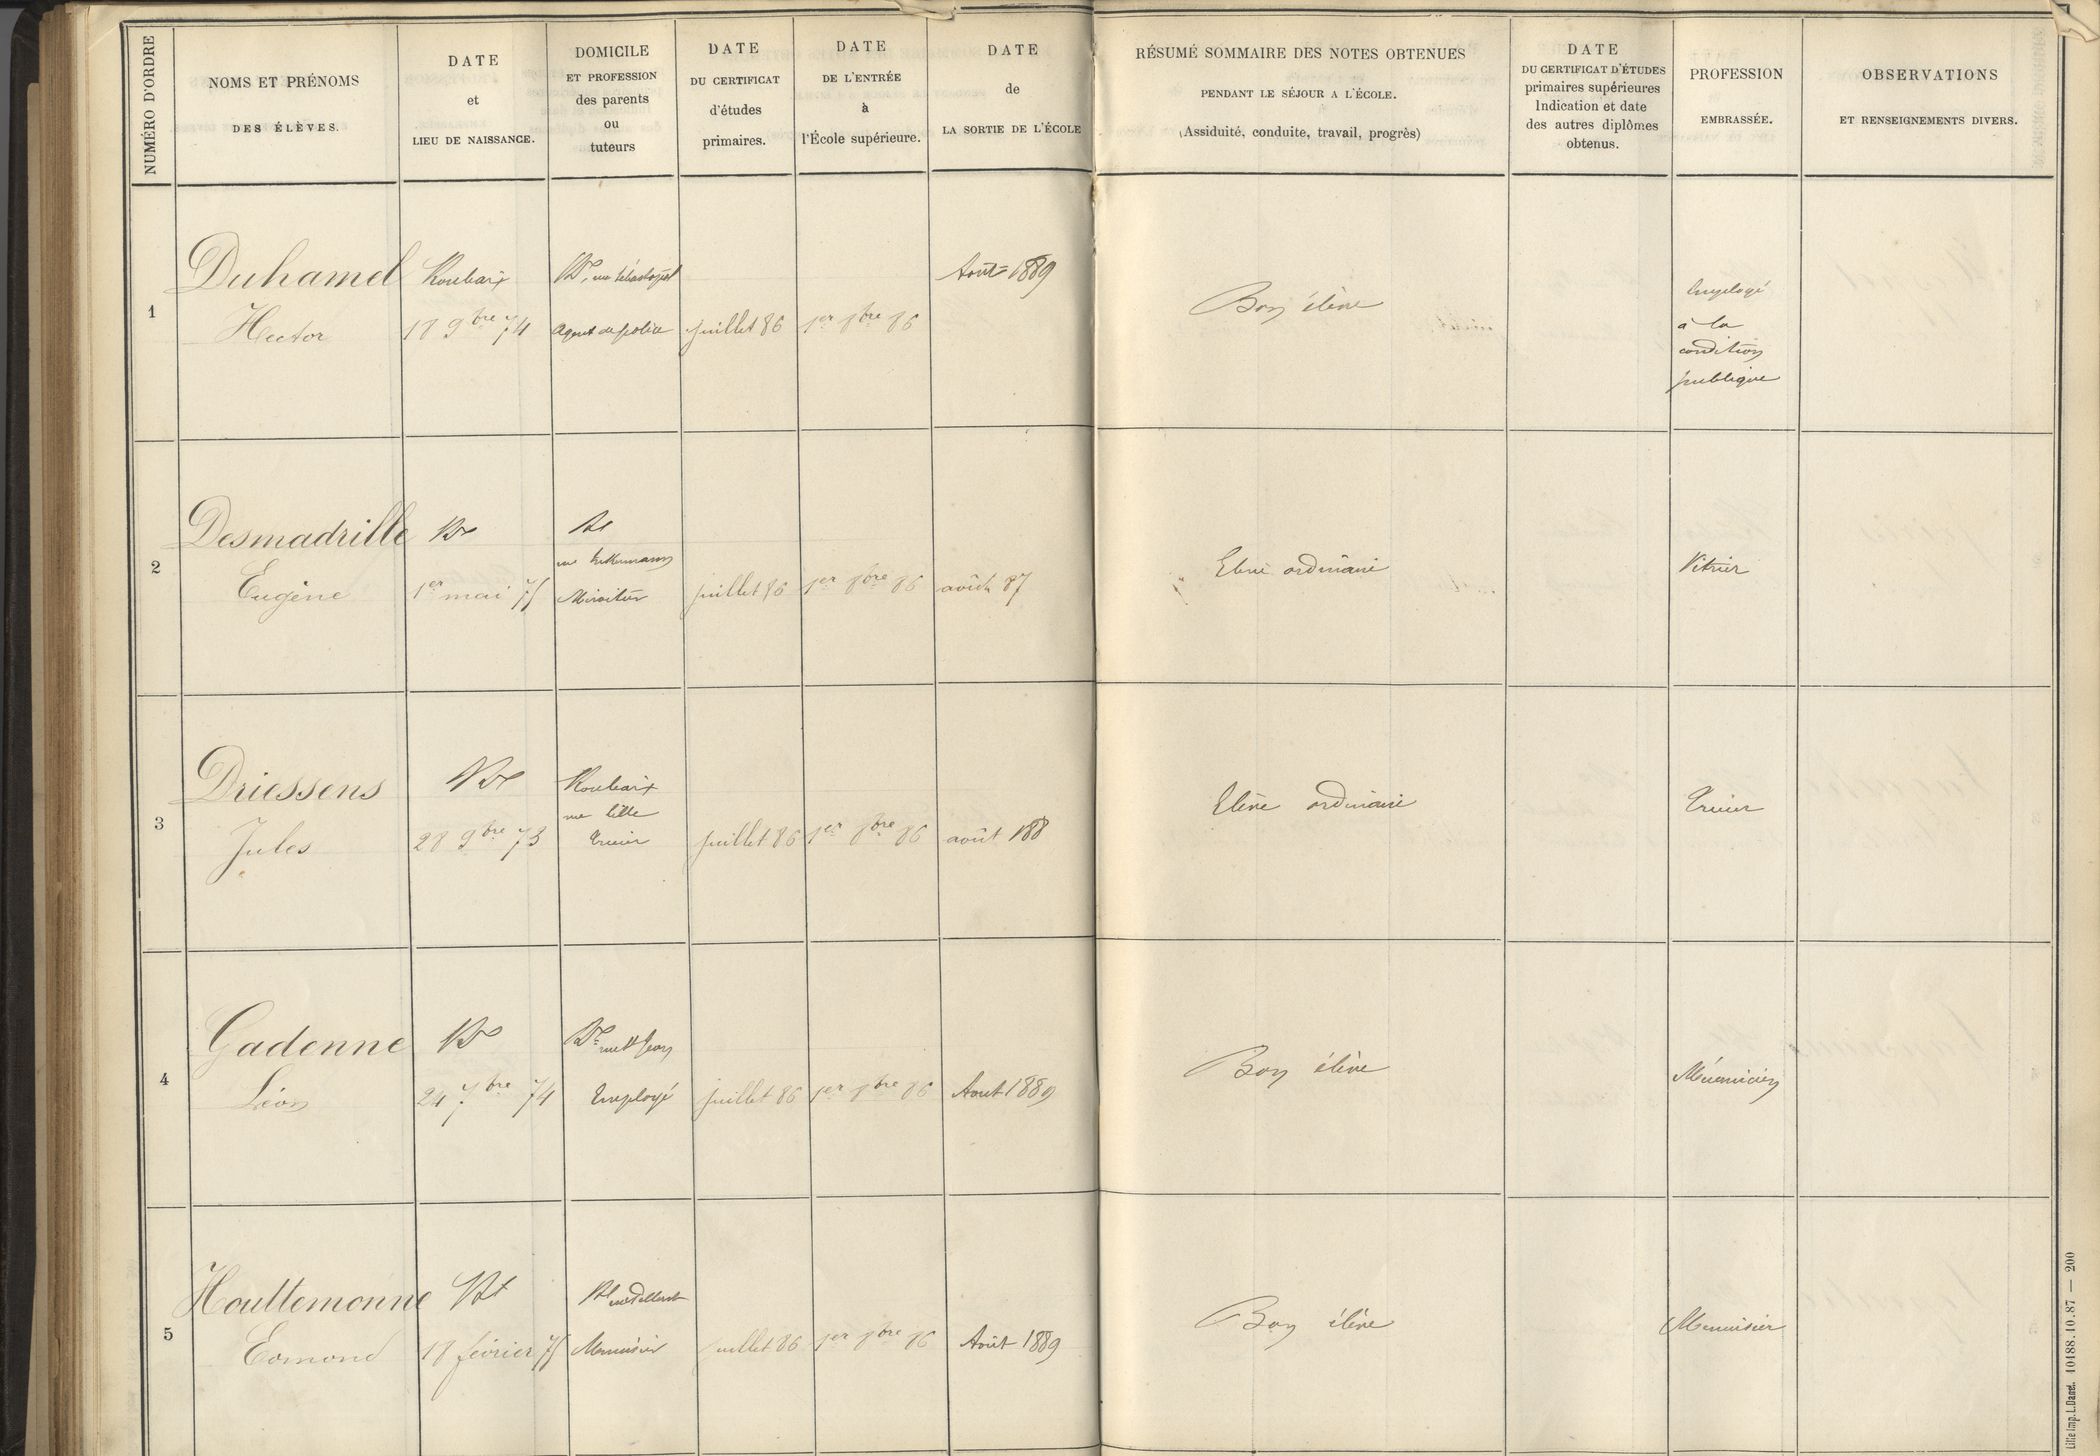 NUMÉRO D'ORDRE
NOMS ET PRÉNOMS
DES ÉLÈVES.
DATE
et
LIEU DE NAISSANCE.
DOMICILE
ET PROFESSION
des parents
ou
tuteurs
DATE
DU CERTIFICAT
d'études
primaires.
DATE
DE L'ENTRÉE
à
l'École supérieure.
DATE
de
LA SORTIE DE L'ÉCOLE
RÉSUMÉ SOMMAIRE DES NOTES OBTENUES
PENDANT LE SÉJOUR A L'ÉCOLE.
(Assiduité, conduite, travail, progrès)
DATE
DU CERTIFICAT D'ÉTUDES
primaires supérieures
Indication et date
des autres diplômes
obtenus.
PROFESSION
EMBRASSÉE.
OBSERVATIONS
ET RENSEIGNEMENTS DIVERS.
1
Duhamel
Hector
Roubaix
18 9bre 74
Rx, rue Sébastopol
Agent de police
juillet 86
1er 8bre 86
Août 1889
Bon élève
Employé
à la
condition
publique
2
Desmadrille
Eugène
Rx
1er mai 75
Rx
rue
Miroitier
juillet 86
1er 8bre 86
août 87
Elève ordinaire
Vitrier
3
Driessens
Jules
Rx
28 9bre 73
Roubaix
rue Lille
juillet 86
1er 8bre 86
août 188
Elève ordinaire
4
Gadenne
Léon
Rx
24 7bre 74
Rx rue St Jean
Employé
juillet 86
1er 8bre 86
Aout 1889
Bon élève
Mécanicien
5
Houttemonne
Edmond
Rx
18 février 75
Rx rue
Menuisier
juillet 86
1er 8bre 86
Août 1889
Bon élève
Menuisier
Lille Imp. L. Danel. 10188.10.87 — 200